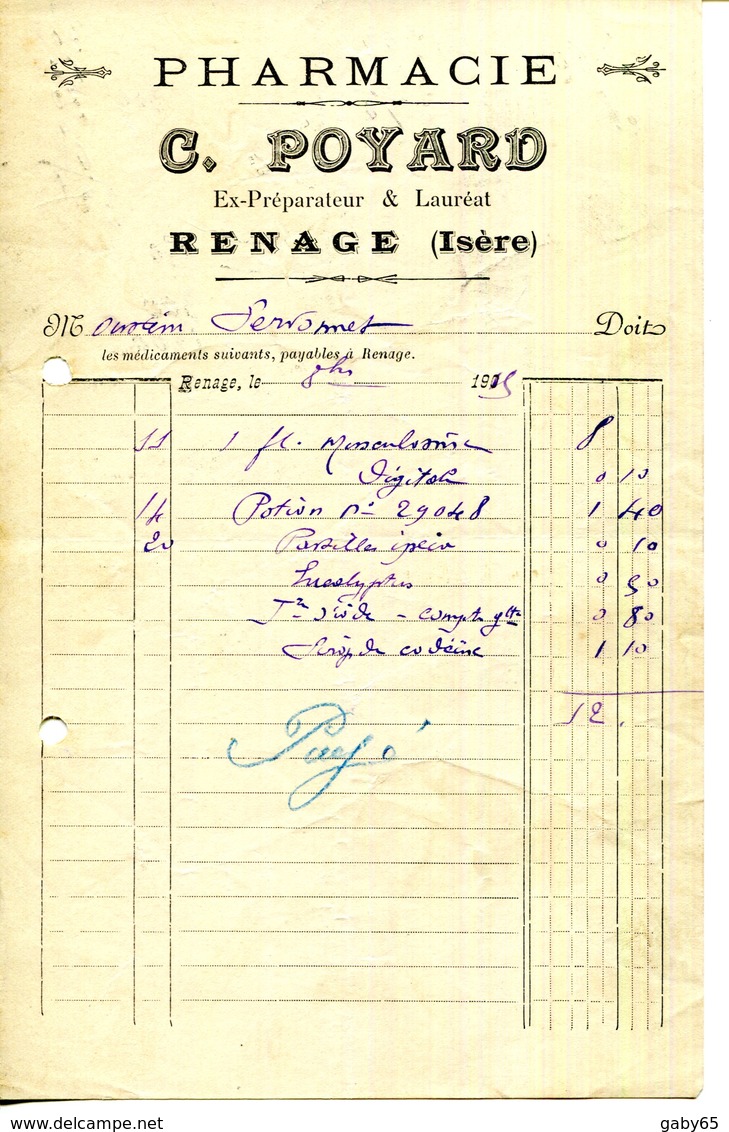 PHARMACIE
C. POYARD
Ex-Préparateur & Lauréat
RENAGE (Isère)
M Doit
les médicaments suivants, payables à Renage.
Renage, le 8bre 19
11 1 fl. Musculosine 8
Digitale 0 10
14 Potion n° 29048 1 40
20 Pastilles ipéca 0 10
Eucalyptus 0 50
Tre d'iode - compte gttes 0 80
Sirop de codéine 1 10
12
Payé
delcampe.net
gaby65